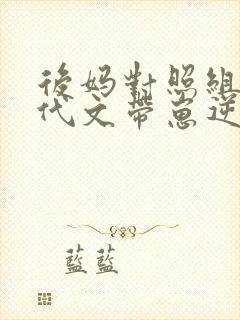 後妈對照組
代文帶崽逆
藍藍